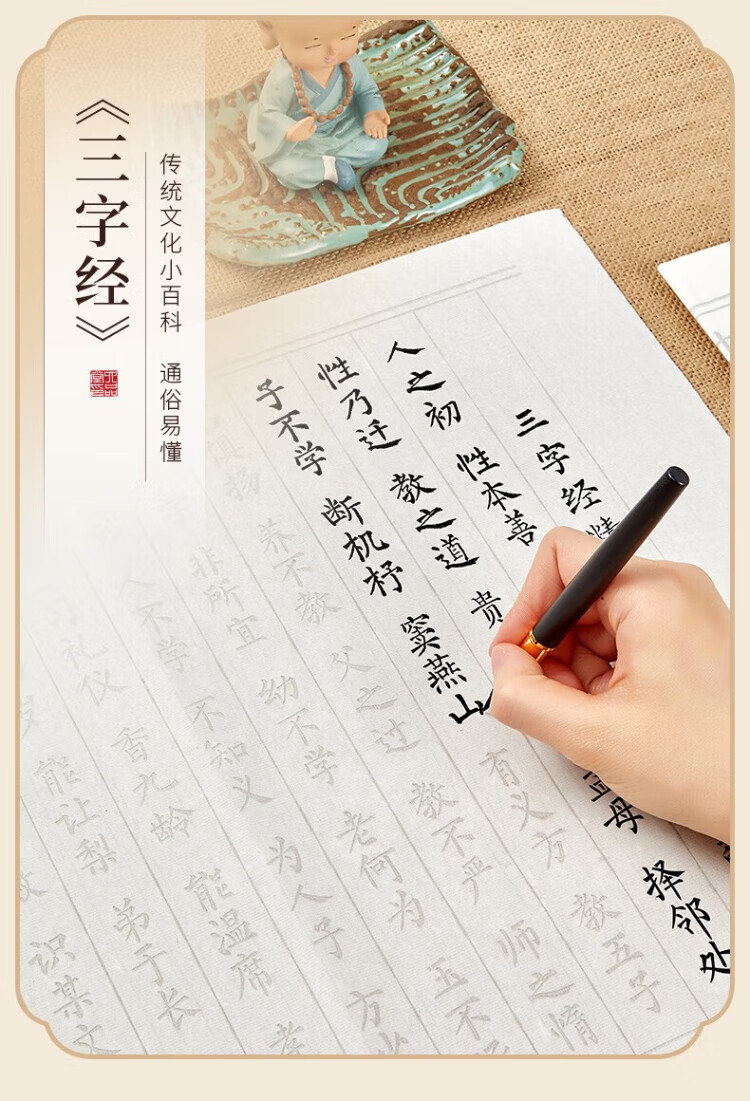 《三字经》
传统文化小百科 通俗易懂
三字经
人之初 性本善
性乃迁 教之道 贵 孟母 择邻处
子不学 断机杼 窦燕山 有义方 教五子
扬 养不教 父之过 教不严 师之惰
非所宜 幼不学 老何为 玉不
人不学 不知义 为人子 方少
礼仪 香九龄 能温席 孝
能让梨 弟于长
识某文